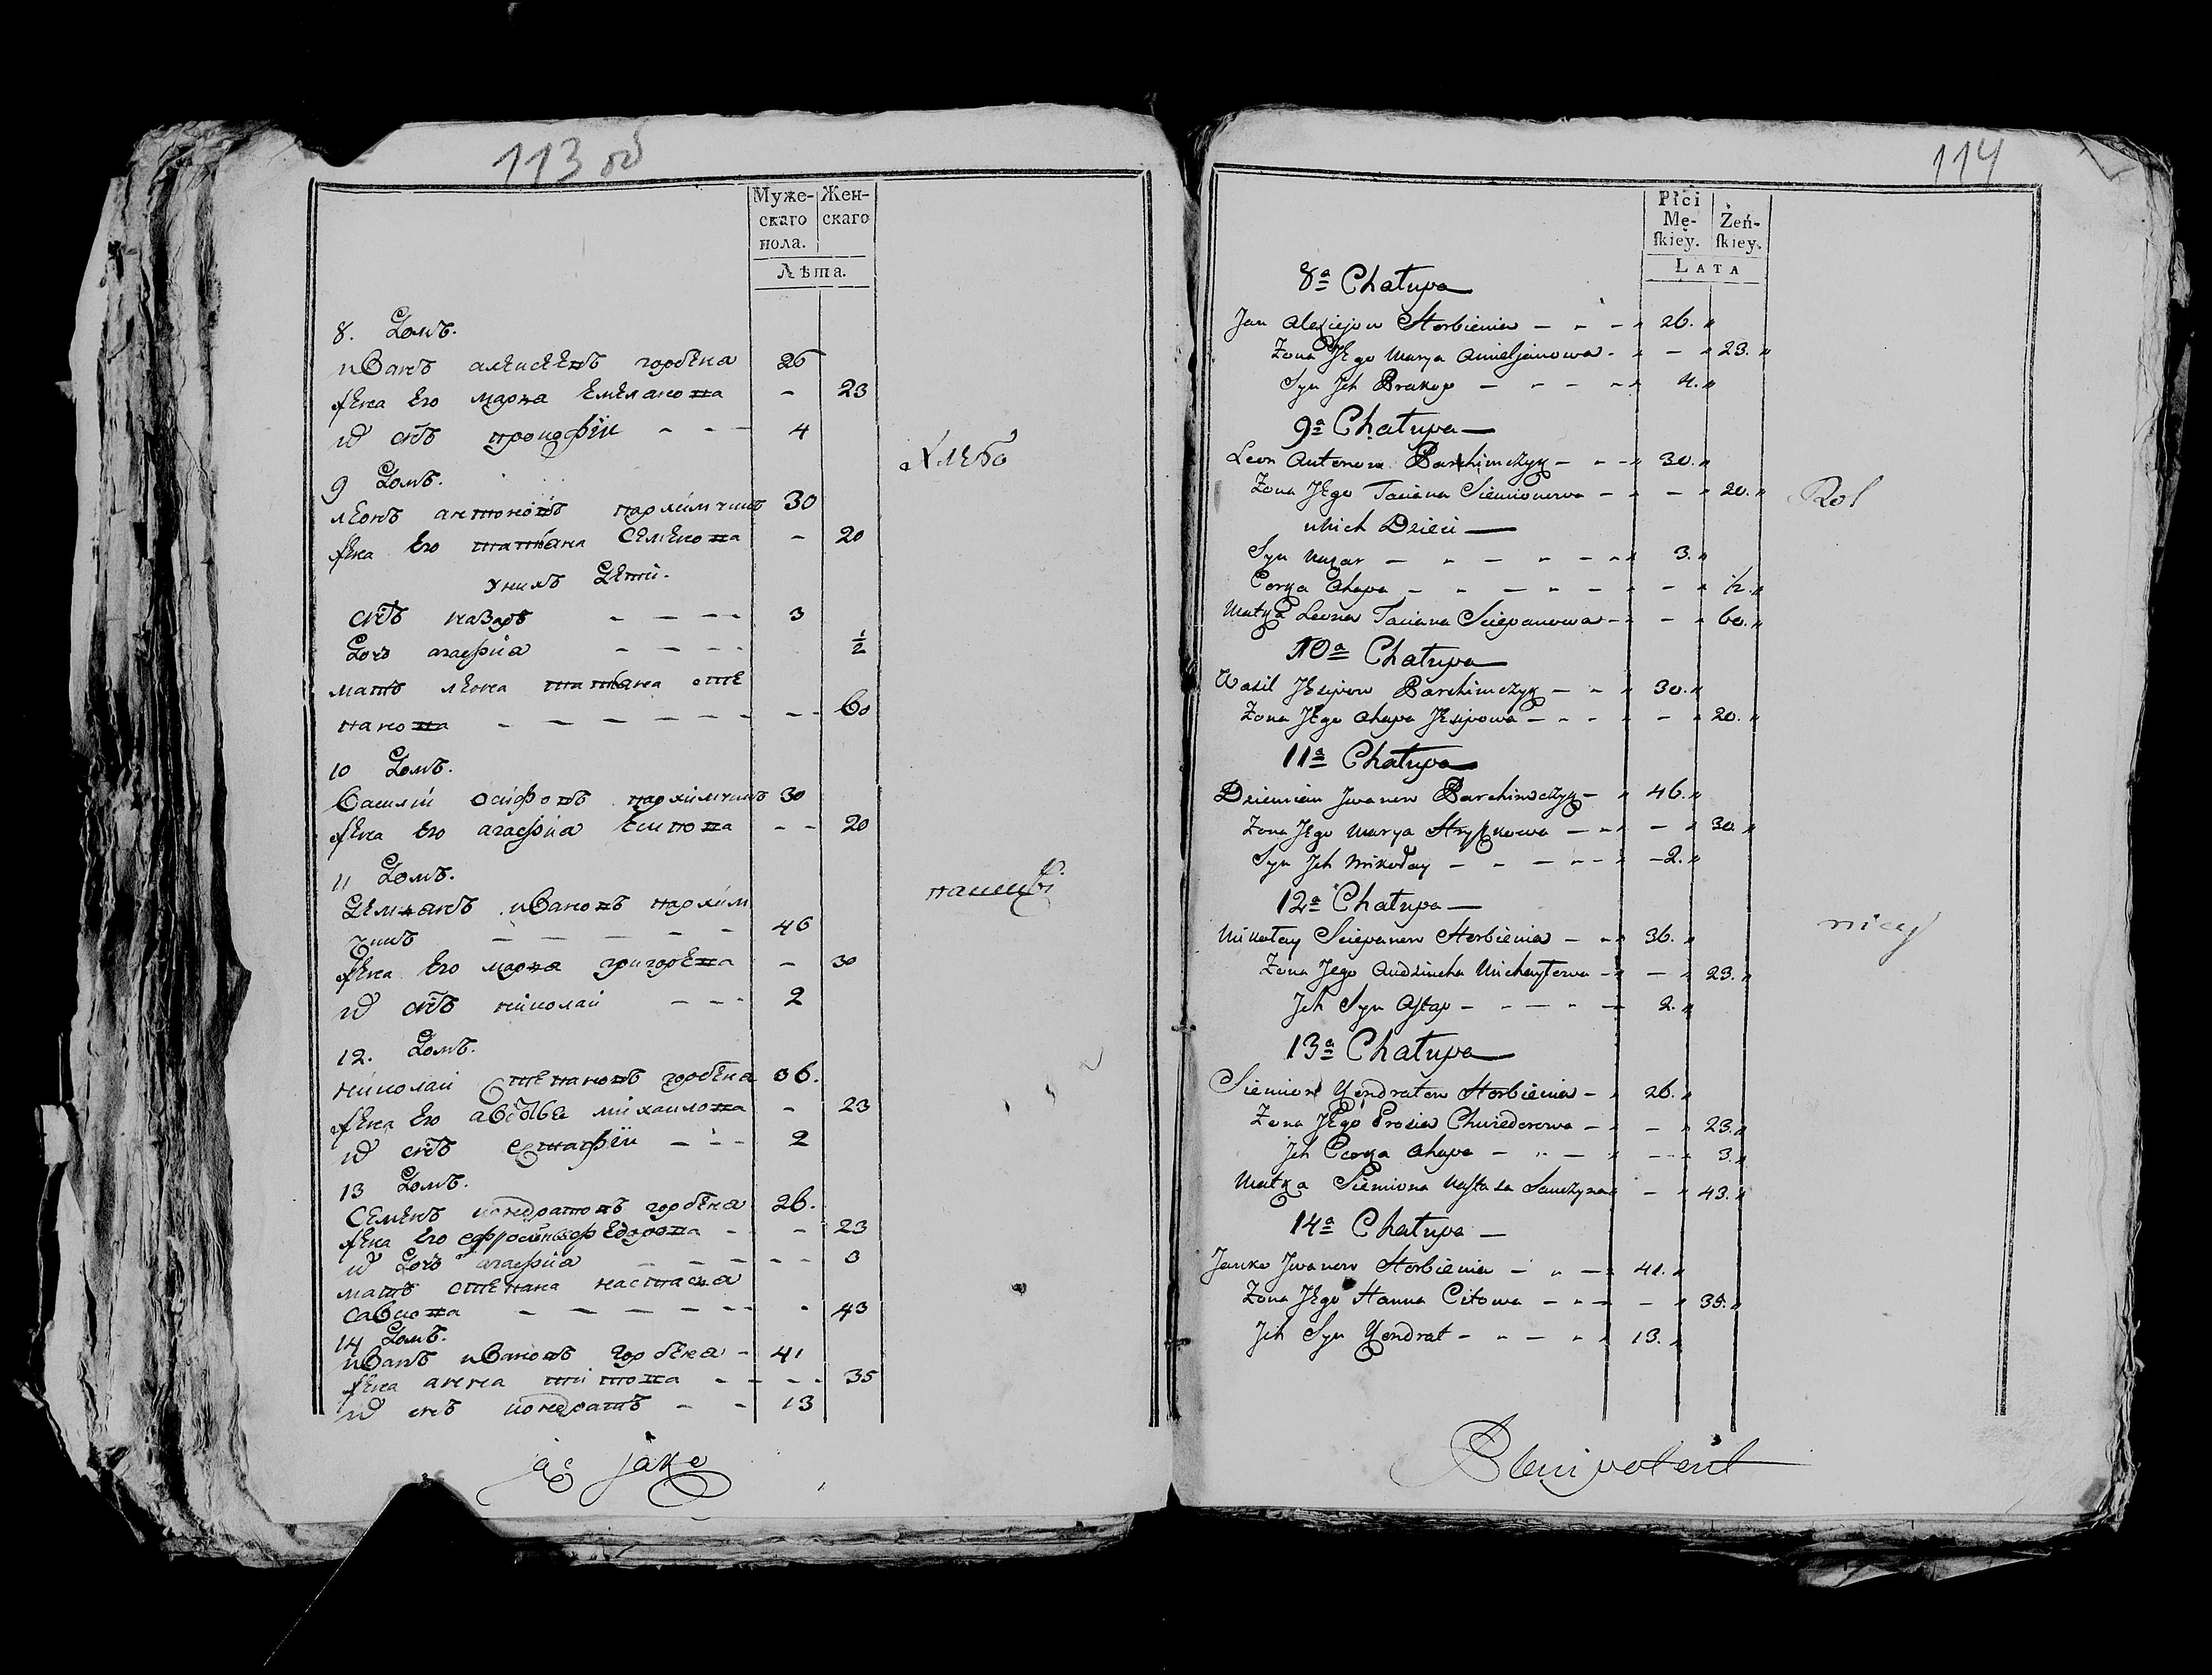 113 об
Муже-
скаго
пола.
Жен-
скаго
Лѣта.
8. Домъ.
иванъ алексеевъ горбена 26
жена его маряа емелянова - 23
их снъ прокофiи - - - 4
Хлебо
9 Домъ.
леонъ антоновъ пархимчикъ 30
жена его татьяна семенова - 20
у них дети.
снъ назаръ - - - - 3
дочь агафиа - - - - ½
мать леона татьяна сте
панова - - - - - - - - 60
10 Домъ.
василiй осифовъ пархимчикъ 30
жена его агафиа есипова - - 20
11 Домъ.
демянъ ивановъ пархим
чикъ - - - - - 46
пашцы
жена его маряа григорева - 30
их снъ николаи - - - 2
12. Домъ.
николаи степановъ горбена 36.
жена его михаилова - 23
их снъ естафiи - - - 2
13 Домъ.
семенъ кондратовъ горбена 26.
жена его федорова - - 23
их дочь агафиа - - - - - 3
мать степана настасяа
савкова - - - - - - - 43
14 Домъ.
иванъ ивановъ горбена - 41
жена анна титова - - - - 35
их снъ кондратъ - - 13
114
Płci
Mę-
ſkiey.
Żeń-
ſkiey.
LATA
8ª Chałupa
Jan Alexiejow Horbienia - - - 26. "
Zona Jego Marya Amieljanowa - " - " 23. "
Syn Jch Prakop - - - - " 4. "
9ª Chałupa
Leon Antonow Parchimczyk - - - 30. "
Zona Jego Taciana Siemionowa - - - " 20. "
Rol
unich Dzieci
Syn Nazar - - - - - " 3. "
Corka Ahapa - - - - - - - " ½. "
Matka Leona Taciana Sciepanowa - - - " 60. "
10ª Chałupa
Wasil Jesipow Parchimczyk - - " 30. "
Zona Jego Ahapa Jesipowa - - - - " 20. "
11ª Chałupa
Dziemian Jwanow Parchimczyk - " 46. "
Zona Jego Marya - - - " 30. "
Syn Jch Mikołay - - - - - 2. "
12ª Chałupa
nicy
Mikołay Sciepanow Horbienia - - " 36. "
Zona Jego Audziucha Michayłowa - - - " 23. "
Jch Syn Astap - - - - - 2. "
13ª Chałupa
Siemion Kondratow Horbienia - " 26. "
Zona Jego Prosia Chwiedorowa - - - " 23. "
Jch Corka Ahapa - - - " - " 3. "
Matka Siemiona Nastazia - " 43. "
14ª Chałupa
Janko Jwanow Horbienia - " - " 41. "
Zona Jego Hanna Citowa - - - - " 35. "
Jch Syn Kondrat - - - - " 13. "